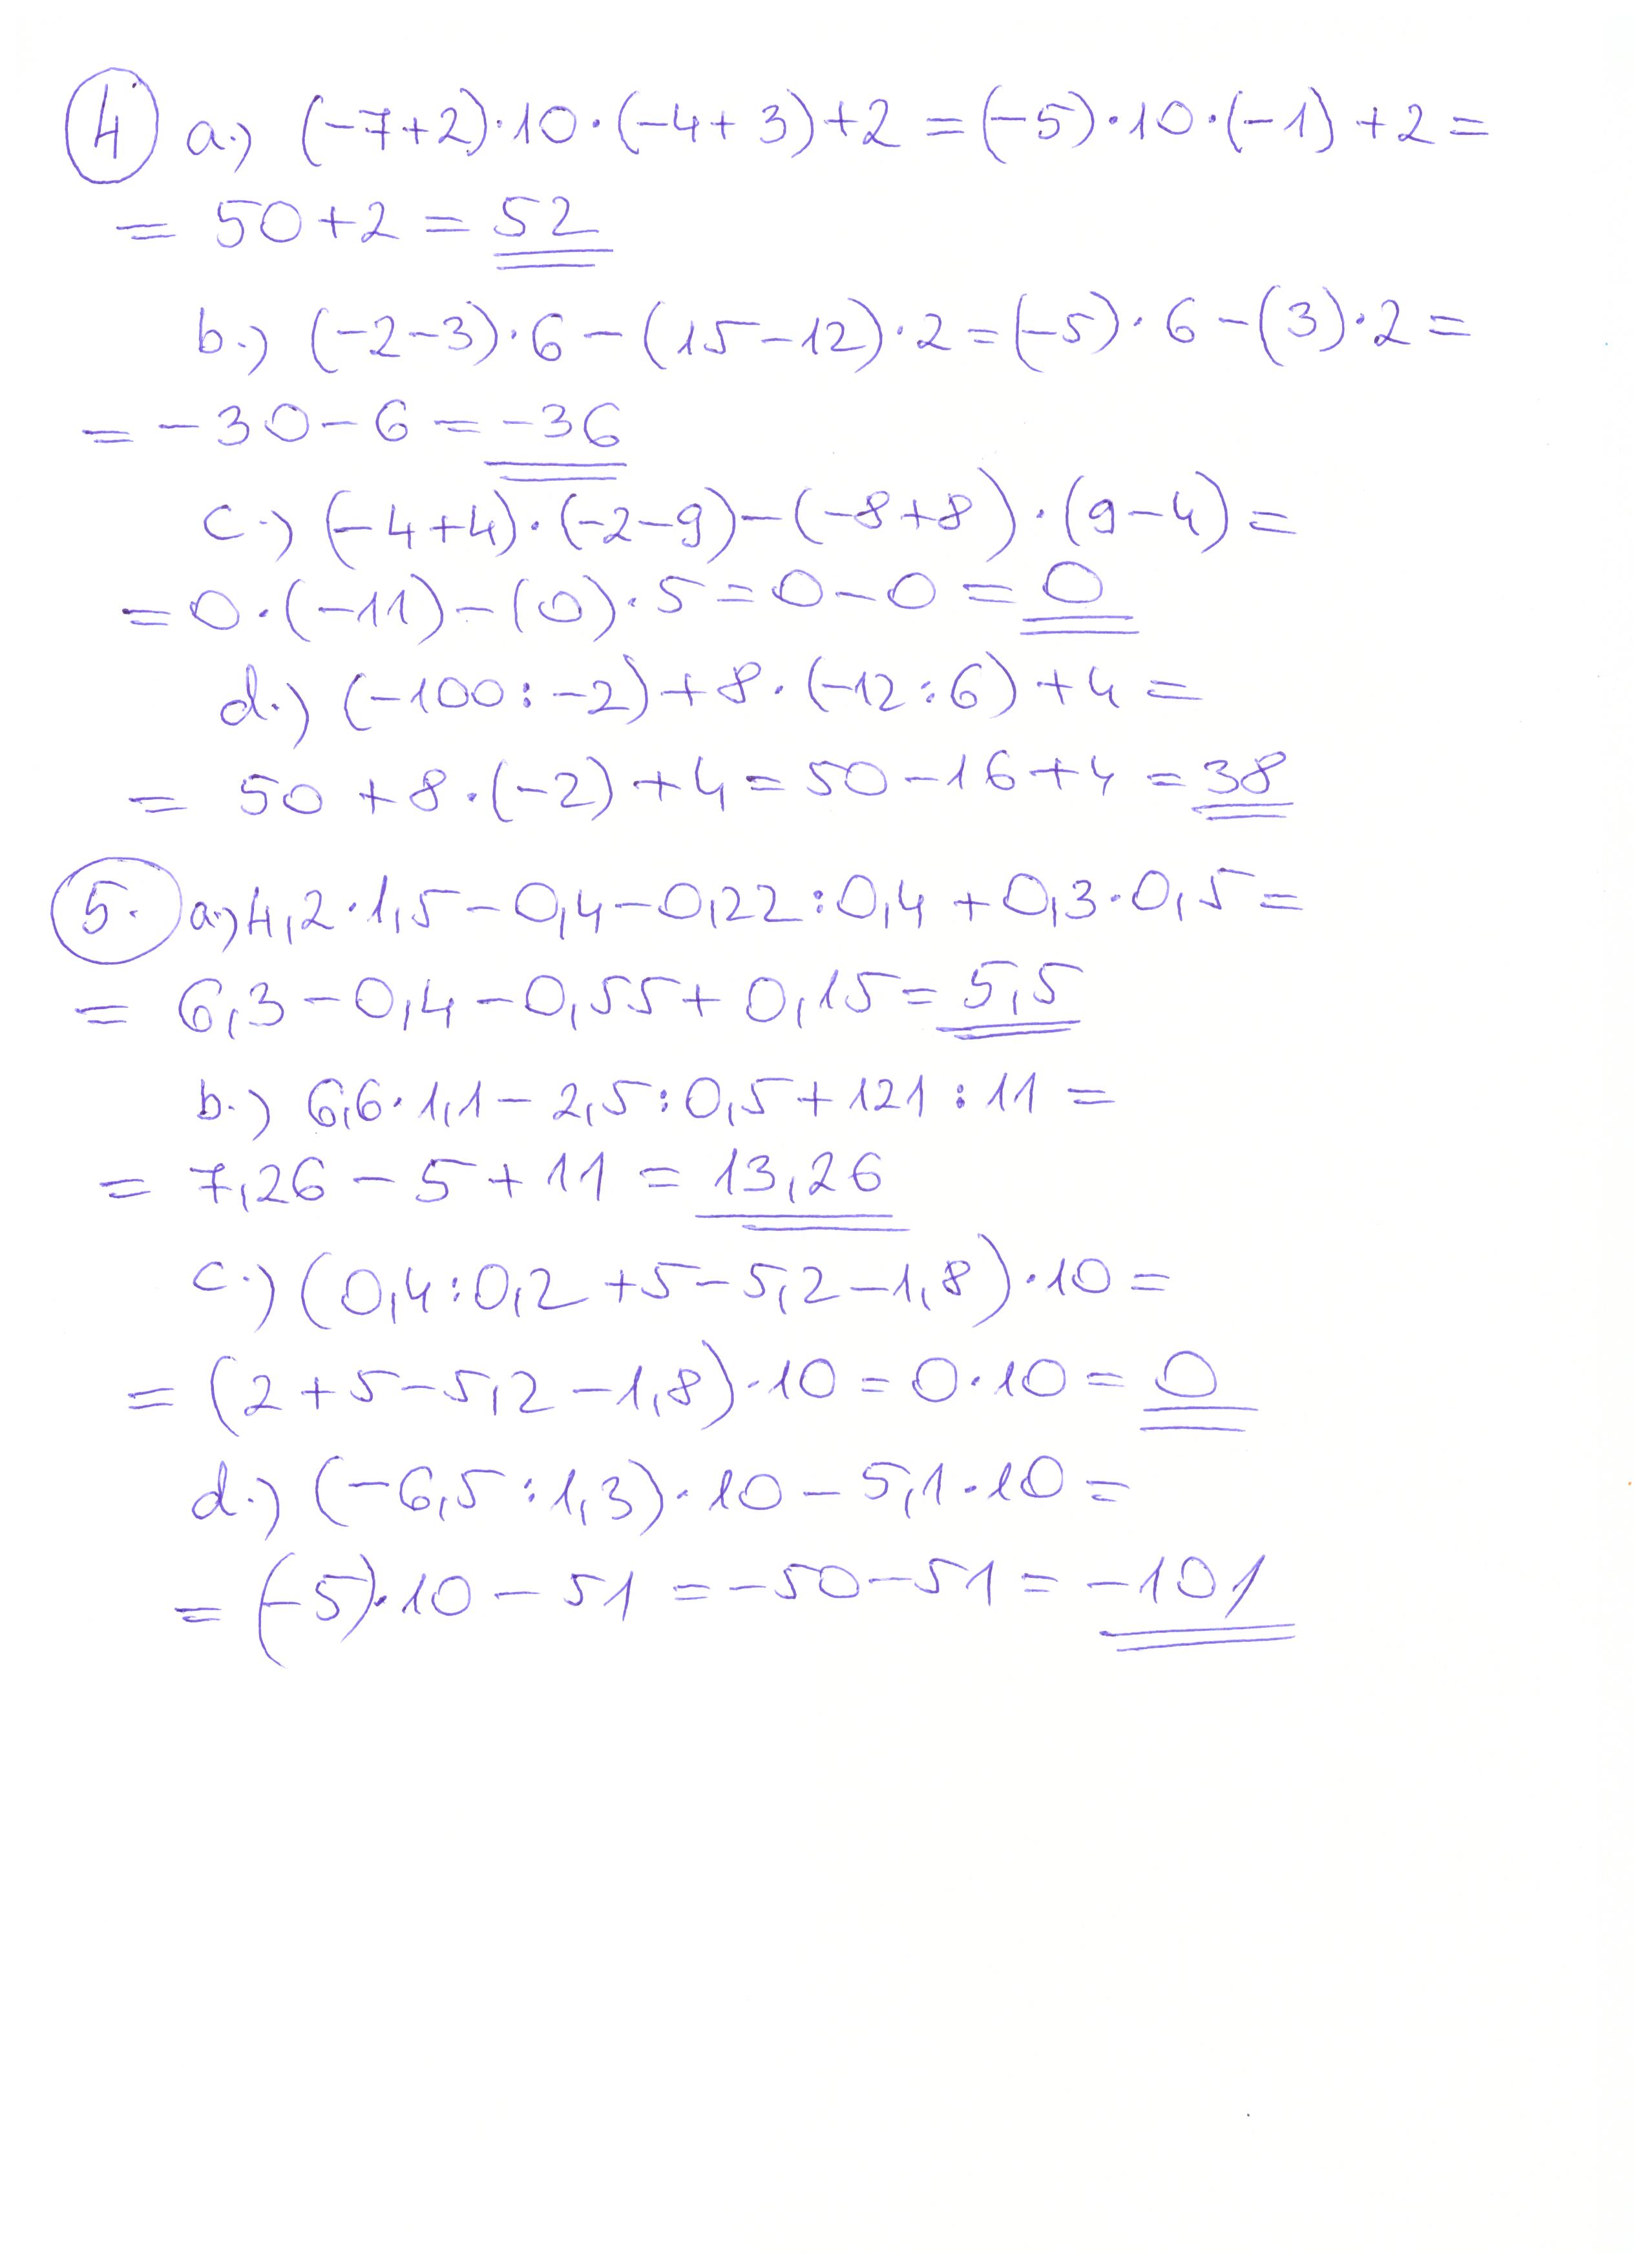 4 a.) (-7+2)·10·(-4+3)+2=(-5)·10·(-1)+2=
= 50+2=52
b.) (-2-3)·6-(15-12)·2=(-5)·6-(3)·2=
=-30-6=-36
c.) (-4+4)·(-2-9)-(-8+8)·(9-4)=
=0·(-11)-(0)·5=0-0=0
d.) (-100:-2)+8·(-12:6)+4=
= 50+8·(-2)+4=50-16+4=38
5. a.) 4,2·1,5-0,4-0,22:0,4+0,3·0,5=
= 6,3-0,4-0,55+0,15=5,5
b.) 6,6·1,1-2,5:0,5+121:11=
= 7,26-5+11=13,26
c.) (0,4:0,2+5-5,2-1,8)·10=
=(2+5-5,2-1,8)·10=0·10=0
d.) (-6,5:1,3)·10-5,1·10=
=(-5)·10-51=-50-51=-101